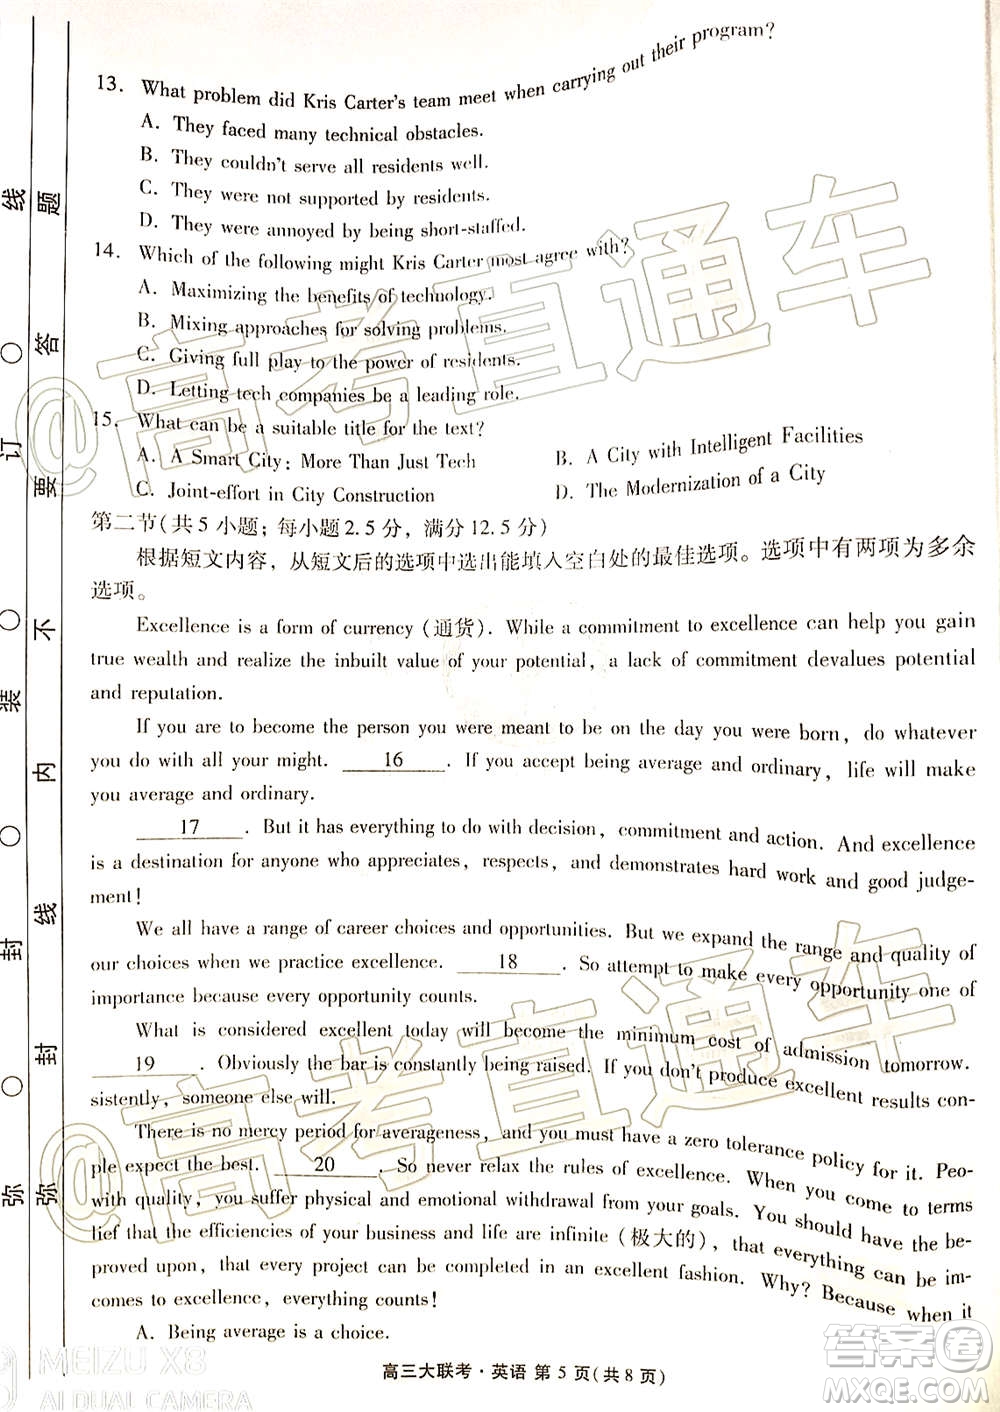 13. What problem did Kris Carter's team meet when carrying out their program?
A. They faced many technical obstacles.
B. They couldn't serve all residents well.
C. They were not supported by residents.
D. They were annoyed by being short-staffed.
14. Which of the following might Kris Carter most agree with?
A. Maximizing the benefits of technology.
B. Mixing approaches for solving problems.
C. Giving full play to the power of residents.
D. Letting tech companies be a leading role.
15. What can be a suitable title for the text?
A. A Smart City: More Than Just Tech
B. A City with Intelligent Facilities
C. Joint-effort in City Construction
D. The Modernization of a City
第二节(共5小题；每小题2.5分，满分12.5分)
根据短文内容，从短文后的选项中选出能填入空白处的最佳选项。选项中有两项为多余
选项。
Excellence is a form of currency (通货). While a commitment to excellence can help you gain
true wealth and realize the inbuilt value of your potential, a lack of commitment devalues potential
and reputation.
If you are to become the person you were meant to be on the day you were born, do what
you do with all your might. 16 . If you accept being average and ordinary, life will make
you average and ordinary.
17 . But it has everything to do with decision, commitment and action. And excellence
is a destination for anyone who appreciates, respects, and demonstrates hard work and good judge-
ment!
We all have a range of career choices and opportunities. But we expand the range and quality of
our choices when we practice excellence. 18 . So attempt to make every opportunity one of
importance because every opportunity counts.
What is considered excellent today will become the minimum cost of admission tomorrow.
19 . Obviously the bar is constantly being raised. If you don't produce excellent results con-
sistently, someone else will.
There is no mercy period for averageness, and you must have a zero tolerance policy for it. Peo-
ple expect the best. 20 . So never relax the rules of excellence. When you come to terms
with quality, you suffer physical and emotional withdrawal from your goals. You should have the be-
lief that the efficiencies of your business and life are infinite (极大的), that everything can be im-
proved upon, that every project can be completed in an excellent fashion. Why? Because when it
comes to excellence, everything counts!
A. Being average is a choice.
高三大联考·英语 第5页(共8页)
题
答
要
不
内
线
封
弥
线
订
装
封
弥
@高考直通车
@高考直通车
MEIZU X8
AI DUAL CAMERA
答案圈
MXQE.COM